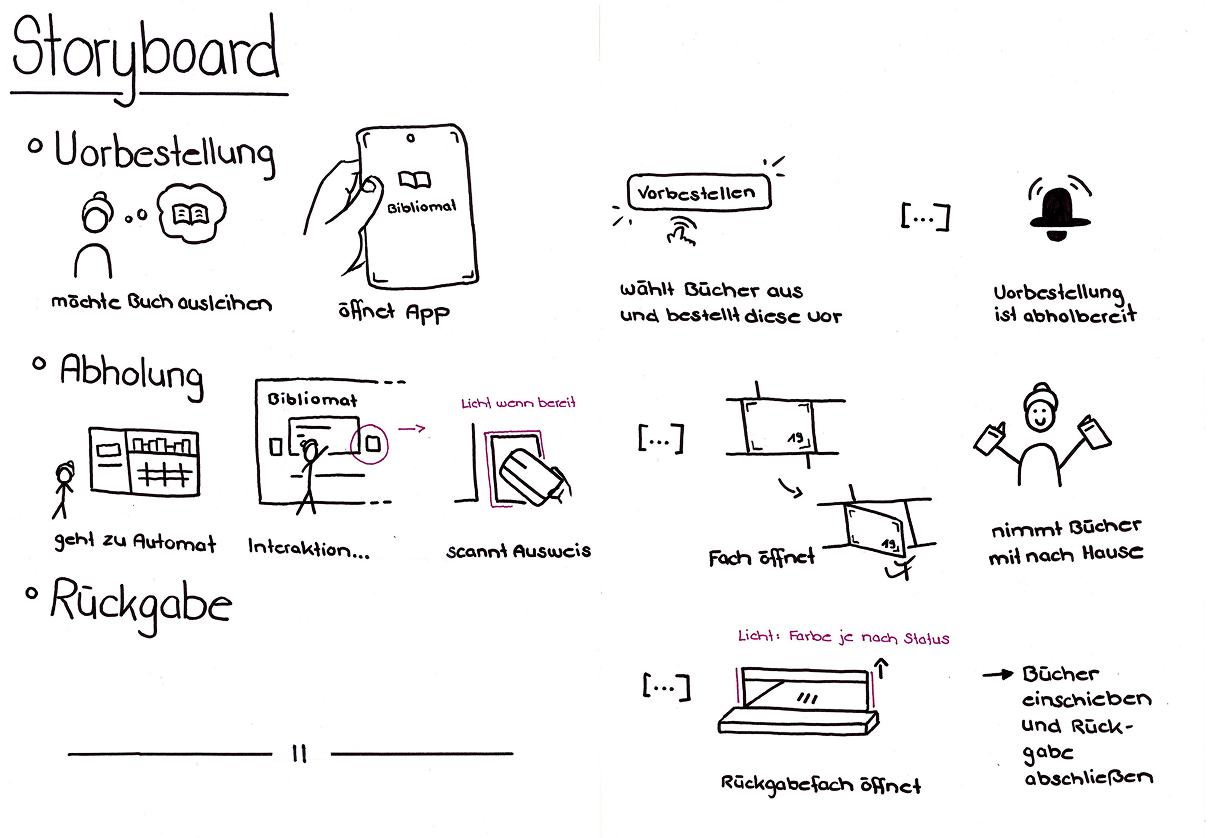 Storyboard
Vorbestellung
möchte Buch ausleihen
Bibliomat
öffnet App
Vorbestellen
wählt Bücher aus
und bestellt diese vor
[...]
Vorbestellung
ist abholbereit
Abholung
geht zu Automat
Bibliomat
Interaktion...
Licht wenn bereit
scannt Ausweis
[...]
19
19
Fach öffnet
nimmt Bücher
mit nach Hause
Rückgabe
11
[...]
Licht: Farbe je nach Status
Rückgabefach öffnet
→ Bücher
einschieben
und Rück-
gabe
abschließen